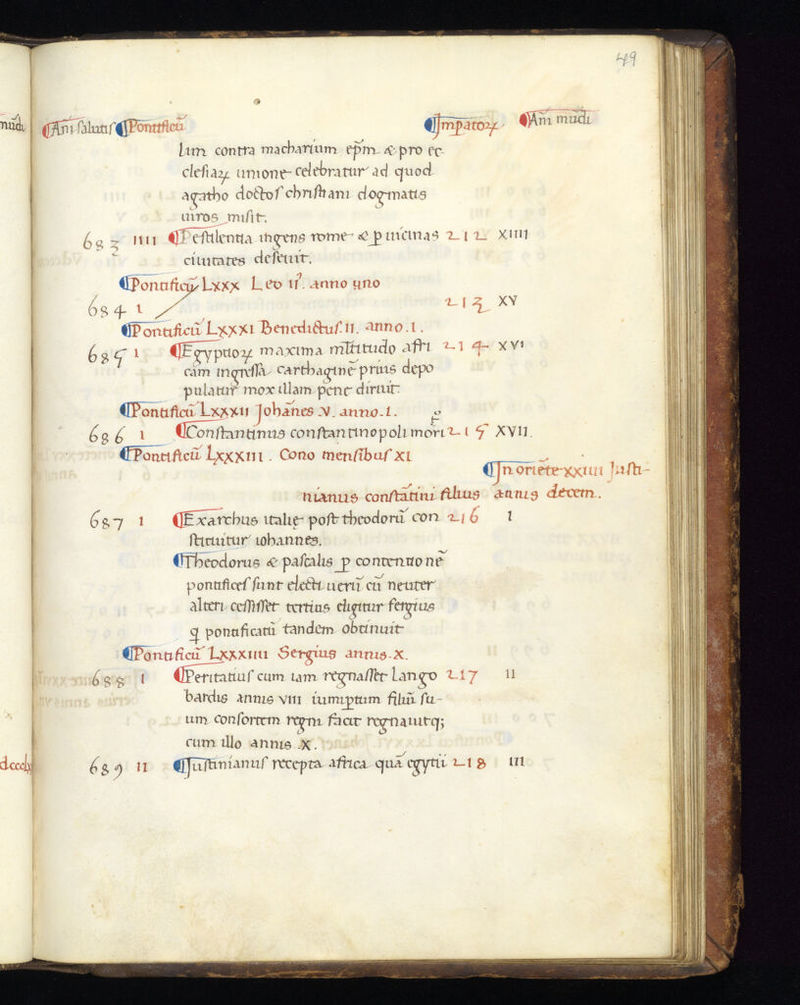 49
¶Ani salutis ¶Pontificū ¶Imperatoꝝ ¶Ani mudi
lim contra macharium ep̄m & pro ec
clesiaꝝ unione celebratur ad quod
agatho doctos christiani dogmatis
uiros misit.
683 IIII ¶Pestilentia ingens rome & ꝑ uicinas 212 XIIII
ciuitates deseuit.
¶Pontificū Lxxx Leo II. anno uno
684 1 213 XV
¶Pontificū Lxxxi Benedictus. II. anno .1.
685 1 ¶Egyptioꝝ maxima mltitudo afri 214 XVI
cam ingressa carthaginē prius depo
pulatur mox illam pene diruit
¶Pontificū Lxxxii Johānes .V. anno .1.
686 1 ¶Constantinus constantinopoli mori 215 XVII.
¶Pontificū Lxxxiii. Cono mensibus XI
¶In oriēte xxiiii Justi-
nianus constātini filius annis decem.
687 1 ¶Exarchus italie post theodorū con 216 1
stituitur iohannes.
¶Theodorus & pascalis ꝑ contentionē
pontifices sunt electi uerū cū neuter
alteri cessisset tertius eligitur sergius
q pontificatū tandem obtinuit
¶Pontificū Lxxxiiii Sergius annis .X.
688 1 ¶Peritatius cum iam regnasset Lango 217 II
bardis annis VIII filiū su-
um consortem regni facit regnauitq;
cum illo annis .X.
689 II ¶Justinianus recepta africa quā egytii 218 III